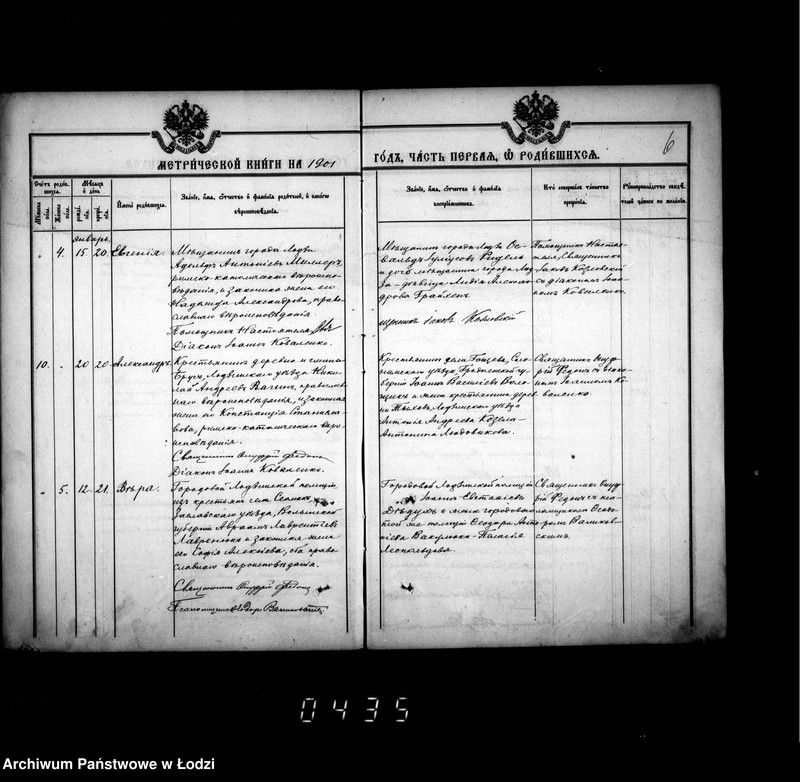 МЕТРИЧЕСКОЙ КНИГИ НА 1901
ГОДЪ, ЧАСТЬ ПЕРВАЯ, Ѡ РОДИВШИХСЯ.
6
Счетъ родив-
шихся.
Мѣсяцъ
и день
Мужеска пола.
Женска пола.
рожденія.
крещенія.
Имена родившихся.
Званіе, имя, отчество и фамилія родителей, и какого
вѣроисповѣданія.
Званіе, имя, отчество и фамилія
воспріемниковъ.
Кто совершалъ таинство
крещенія.
Рукоприкладство свидѣ-
телей записи по желанію.
январь.
4. 15. 20. Евгенія.
Мѣщанинъ города Лодзи
Адольфъ Антоніевъ Миллеръ,
римско-католическаго вѣроиспо-
вѣданія, и законная жена его
Надежда Александрова, право-
славнаго вѣроисповѣданія
Помощникъ Настоятеля
Діаконъ Іоаннъ Коваленко.
Мѣщанинъ города Лодзи Ос-
вальдъ Юліусовъ Ридель
и дочь мѣщанина города Лод-
зи - дѣвица Лидія Алексан-
дрова
Помощникъ Настоя-
теля, Священникъ
Іаковъ Козловскій
съ діакономъ Іоан-
номъ Коваленко.
Іаковъ Козловскій
10. 20 20. Александръ.
Крестьянинъ деревни и гмины
Бруссъ, Лодзинскаго уѣзда Нико-
лай Андреевъ православ-
наго вѣроисповѣданія, и законная
жена его Констанція Станисла-
вова, римско-католическаго вѣро-
исповѣданія.
Священникъ Онуфрій
Діаконъ Іоаннъ Коваленко.
Крестьянинъ села
уѣзда Гродненской гу-
берніи Іоаннъ Василіевъ
и жена крестьянина дерев-
ни Лодзинскаго уѣзда
Антонія Андреева Козела-
Антонина Людовикова.
Священникъ Онуф-
рій съ діако-
номъ Іоанномъ Ко-
валенко.
5. 12. 21. Вѣра.
Городовой Лодзинской полиціи
изъ крестьянъ села
Заславскаго уѣзда, Волынской
губерніи Авраамъ Лаврентіевъ
Лавренюкъ и законная жена
его Софія Алексіева, оба право-
славнаго вѣроисповѣданія.
Священникъ Онуфрій
Псаломщикъ Ѳеодоръ
Городовой Лодзинской полиціи
Іоаннъ Евстафіевъ
и жена городового
той же полиціи Ѳеодора Анто-
ніева Вакулюка - Пелагія
Священникъ Онуф-
рій съ пса-
ломщикомъ Ѳеодо-
ромъ
0435
Archiwum Państwowe w Łodzi